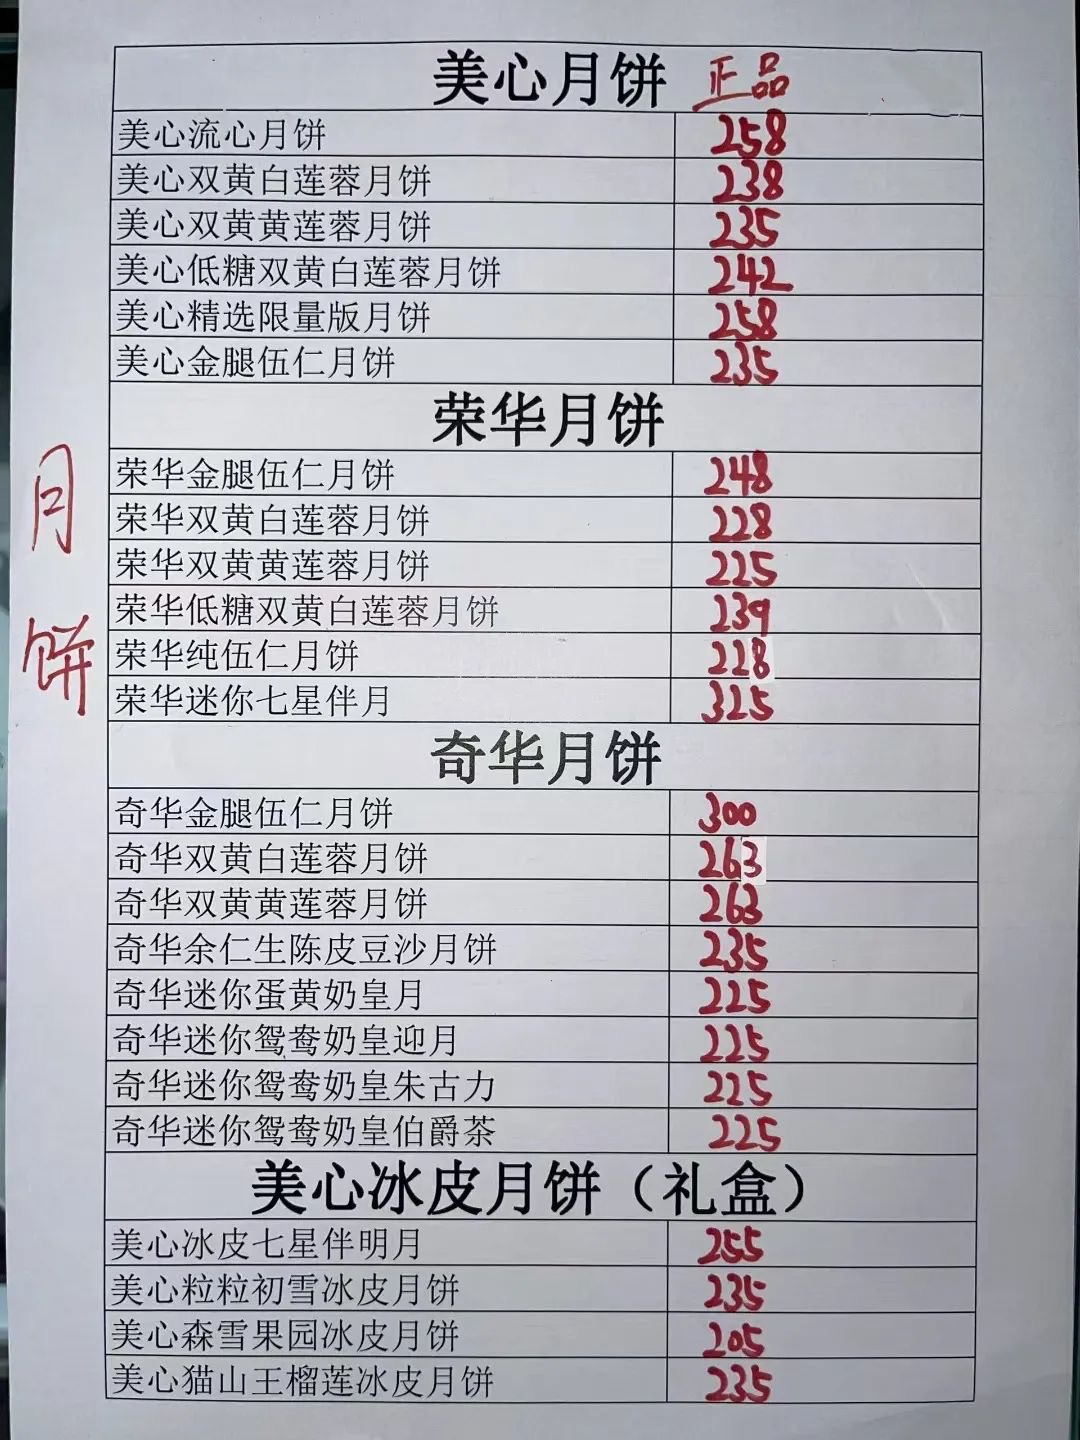 美心月饼 正品
美心流心月饼 258
美心双黄白莲蓉月饼 238
美心双黄黄莲蓉月饼 235
美心低糖双黄白莲蓉月饼 242
美心精选限量版月饼 258
美心金腿伍仁月饼 235
荣华月饼
荣华金腿伍仁月饼 248
荣华双黄白莲蓉月饼 228
荣华双黄黄莲蓉月饼 225
荣华低糖双黄白莲蓉月饼 239
荣华纯伍仁月饼 228
荣华迷你七星伴月 325
月饼
奇华月饼
奇华金腿伍仁月饼 300
奇华双黄白莲蓉月饼 263
奇华双黄黄莲蓉月饼 263
奇华余仁生陈皮豆沙月饼 235
奇华迷你蛋黄奶皇月 225
奇华迷你鸳鸯奶皇迎月 225
奇华迷你鸳鸯奶皇朱古力 225
奇华迷你鸳鸯奶皇伯爵茶 225
美心冰皮月饼（礼盒）
美心冰皮七星伴明月 255
美心粒粒初雪冰皮月饼 235
美心森雪果园冰皮月饼 205
美心猫山王榴莲冰皮月饼 235